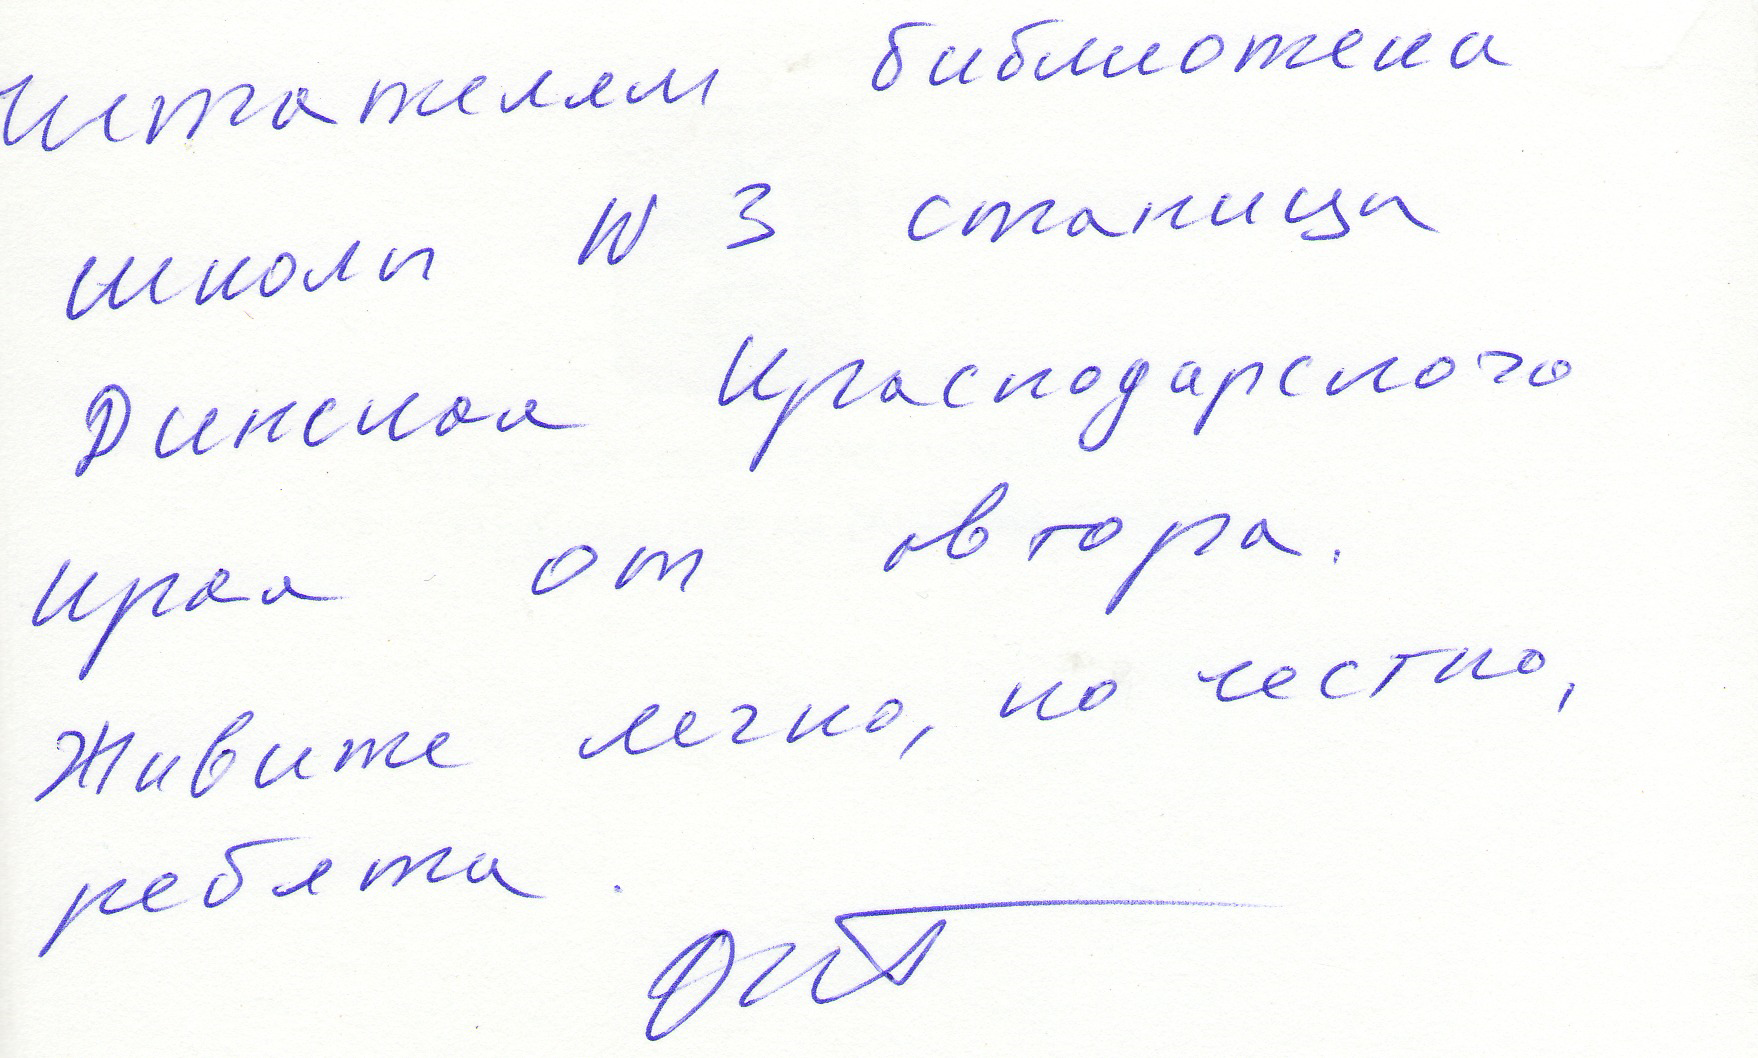 Читателям библиотека
школы № 3 станицы
Динская Краснодарского
края от автора.
Живите легко, но честно,
ребята.